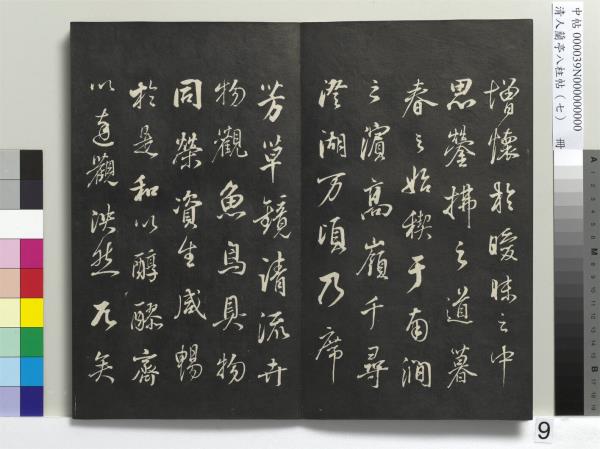 增懷於曖昧之中
思縈拂之道暮
春之始禊于南澗
之濱高嶺千尋
澄湖万頃乃席
芳草鏡清流卉
物觀魚鳥具物
同榮資生咸暢
於是和以醇醪齊
以達觀泱然兀矣
中帖 000039N000000000
清人蘭亭八柱帖（七） 冊
9